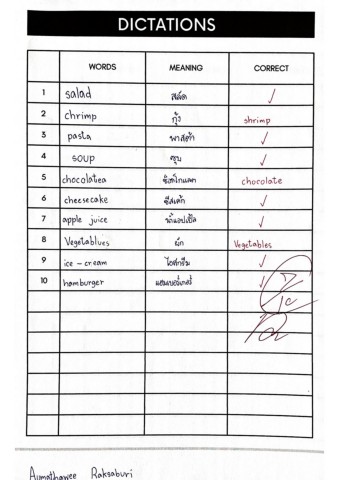 DICTATIONS
WORDS MEANING CORRECT
1 salad สลัด ✓
2 chrimp กุ้ง shrimp
3 pasta พาสต้า ✓
4 soup ซุป ✓
5 chocolatea ช็อกโกแลต chocolate
6 cheesecake ชีสเค้ก ✓
7 apple juice ✓
8 Vegetablues ผัก Vegetables
9 ice - cream ไอศกรีม ✓
10 hamburger แฮมเบอร์เกอร์ ✓
Aumathawee Raksaburi